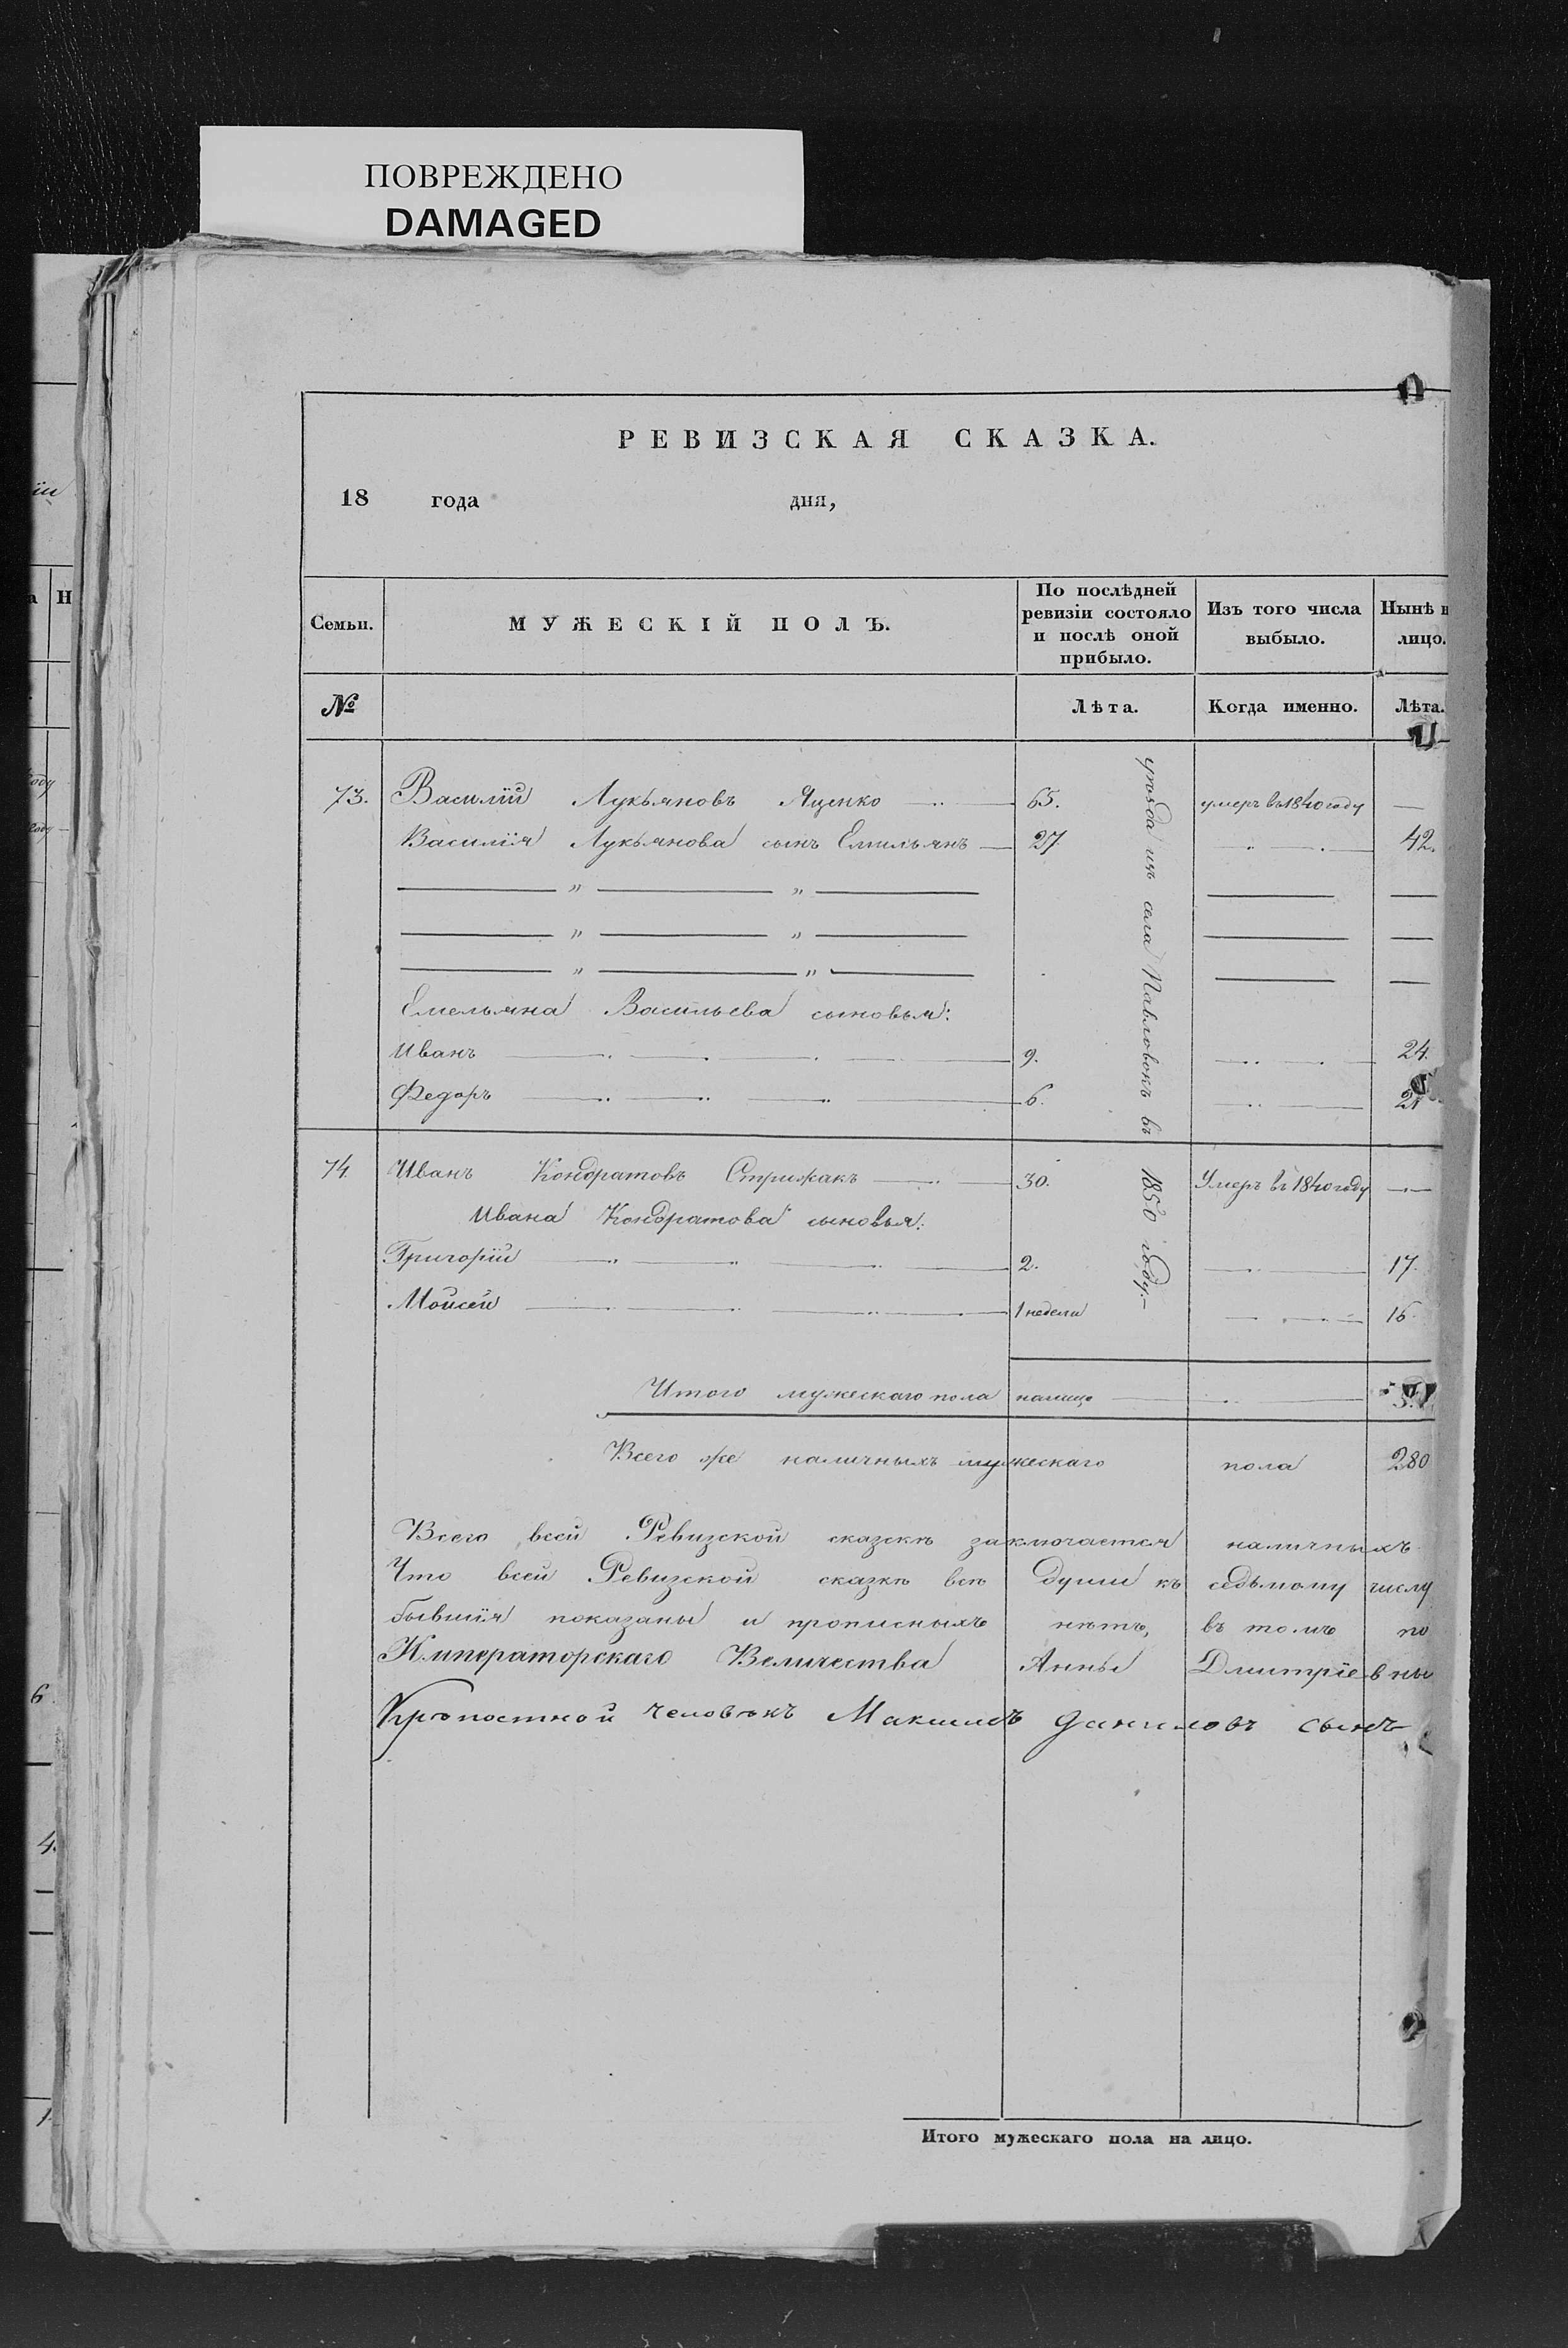 ПОВРЕЖДЕНО
DAMAGED
РЕВИЗСКАЯ СКАЗКА.
18 года дня,
Семьи. МУЖЕСКІЙ ПОЛЪ. По послѣдней ревизіи состояло и послѣ оной прибыло. Изъ того числа выбыло. Нынѣ н лицо.
№ Лѣта. Когда именно. Лѣта.
73. Василій Лукьяновъ Яценко 65. умеръ въ 1840 году —
Василія Лукьянова сынъ Емильянъ 27. 42.
— „ — „ —
— „ — „ —
— „ — „ —
Емельяна Васильева сыновья:
Иванъ 9. 24.
Федоръ 6. 21
уѣзда изъ села Павловокъ въ 1850 году.—
74 Иванъ Кондратовъ Стрижакъ 30. Умеръ въ 1840 году —
Ивана Кондратова сыновья:
Григорій 2. 17.
Мойсей 1 недели 15.
Итого мужескаго пола налицо
Всего же наличныхъ мужескаго пола 280
Всего всей Ревизской сказкѣ заключается наличныхъ
Что всей Ревизской сказкѣ всѣ души къ седьмому числу
бывшія показаны и прописныхъ нѣтъ, въ томъ по
Императорскаго Величества Анны Дмитріевны
Крѣпостной человѣкъ Максимъ Даниловъ сынъ
Итого мужескаго пола на лицо.